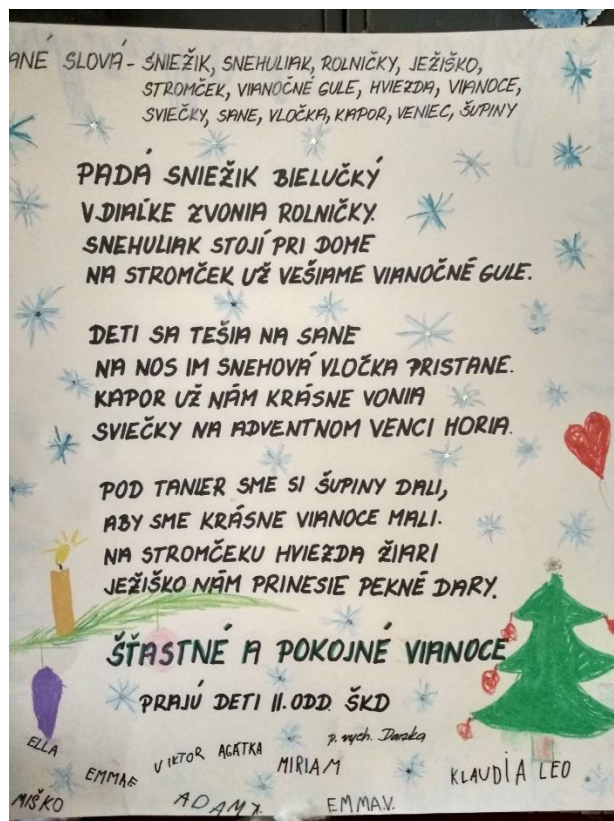 ANÉ SLOVÁ - SNIEŽIK, SNEHULIAK, ROLNIČKY, JEŽIŠKO,
STROMČEK, VIANOČNÉ GULE, HVIEZDA, VIANOCE,
SVIEČKY, SANE, VLOČKA, KAPOR, VENIEC, ŠUPINY
PADÁ SNIEŽIK BIELUČKÝ
V DIAĽKE ZVONIA ROLNIČKY.
SNEHULIAK STOJÍ PRI DOME
NA STROMČEK UŽ VEŠIAME VIANOČNÉ GULE.
DETI SA TEŠIA NA SANE
NA NOS IM SNEHOVÁ VLOČKA PRISTANE.
KAPOR UŽ NÁM KRÁSNE VONIA
SVIEČKY NA ADVENTNOM VENCI HORIA.
POD TANIER SME SI ŠUPINY DALI,
ABY SME KRÁSNE VIANOCE MALI.
NA STROMČEKU HVIEZDA ŽIARI
JEŽIŠKO NÁM PRINESIE PEKNÉ DARY.
ŠŤASTNÉ A POKOJNÉ VIANOCE
PRAJÚ DETI II. ODD. ŠKD
p. vych. Darzka
ELLA EMMAE VIKTOR AGÁTKA MIRIAM KLAUDIA LEO
MIŠKO ADAM EMMA.V.